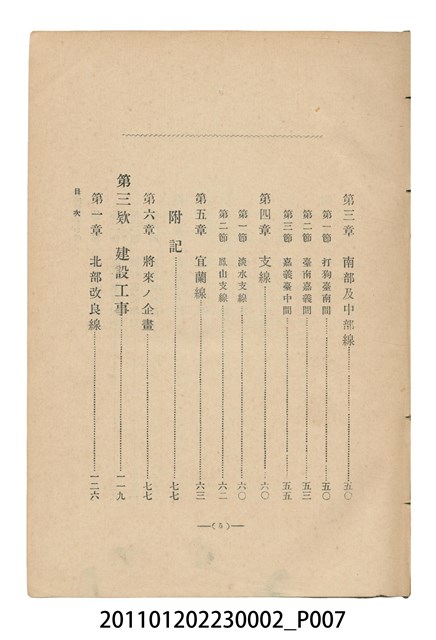 第三章 南部及中部線……五〇
第一節 打狗臺南間……五〇
第二節 臺南嘉義間……五三
第三節 嘉義臺中間……五五
第四章 支線……六〇
第一節 淡水支線……六〇
第二節 鳳山支線……六二
第五章 宜蘭線……六三
附記……七七
第六章 將來ノ企畫……七七
第三欵 建設工事……一一九
第一章 北部改良線……一二六
目次
—(5)—
201101202230002_P007